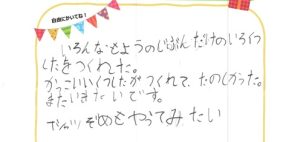 自由にかいてね!
いろんなもようのじぶんだけのいろくつ
したをつくれた。
かっこいいくつしたがつくれて、たのしかった。
またいきたいです。
Tシャツぞめもやってみたい